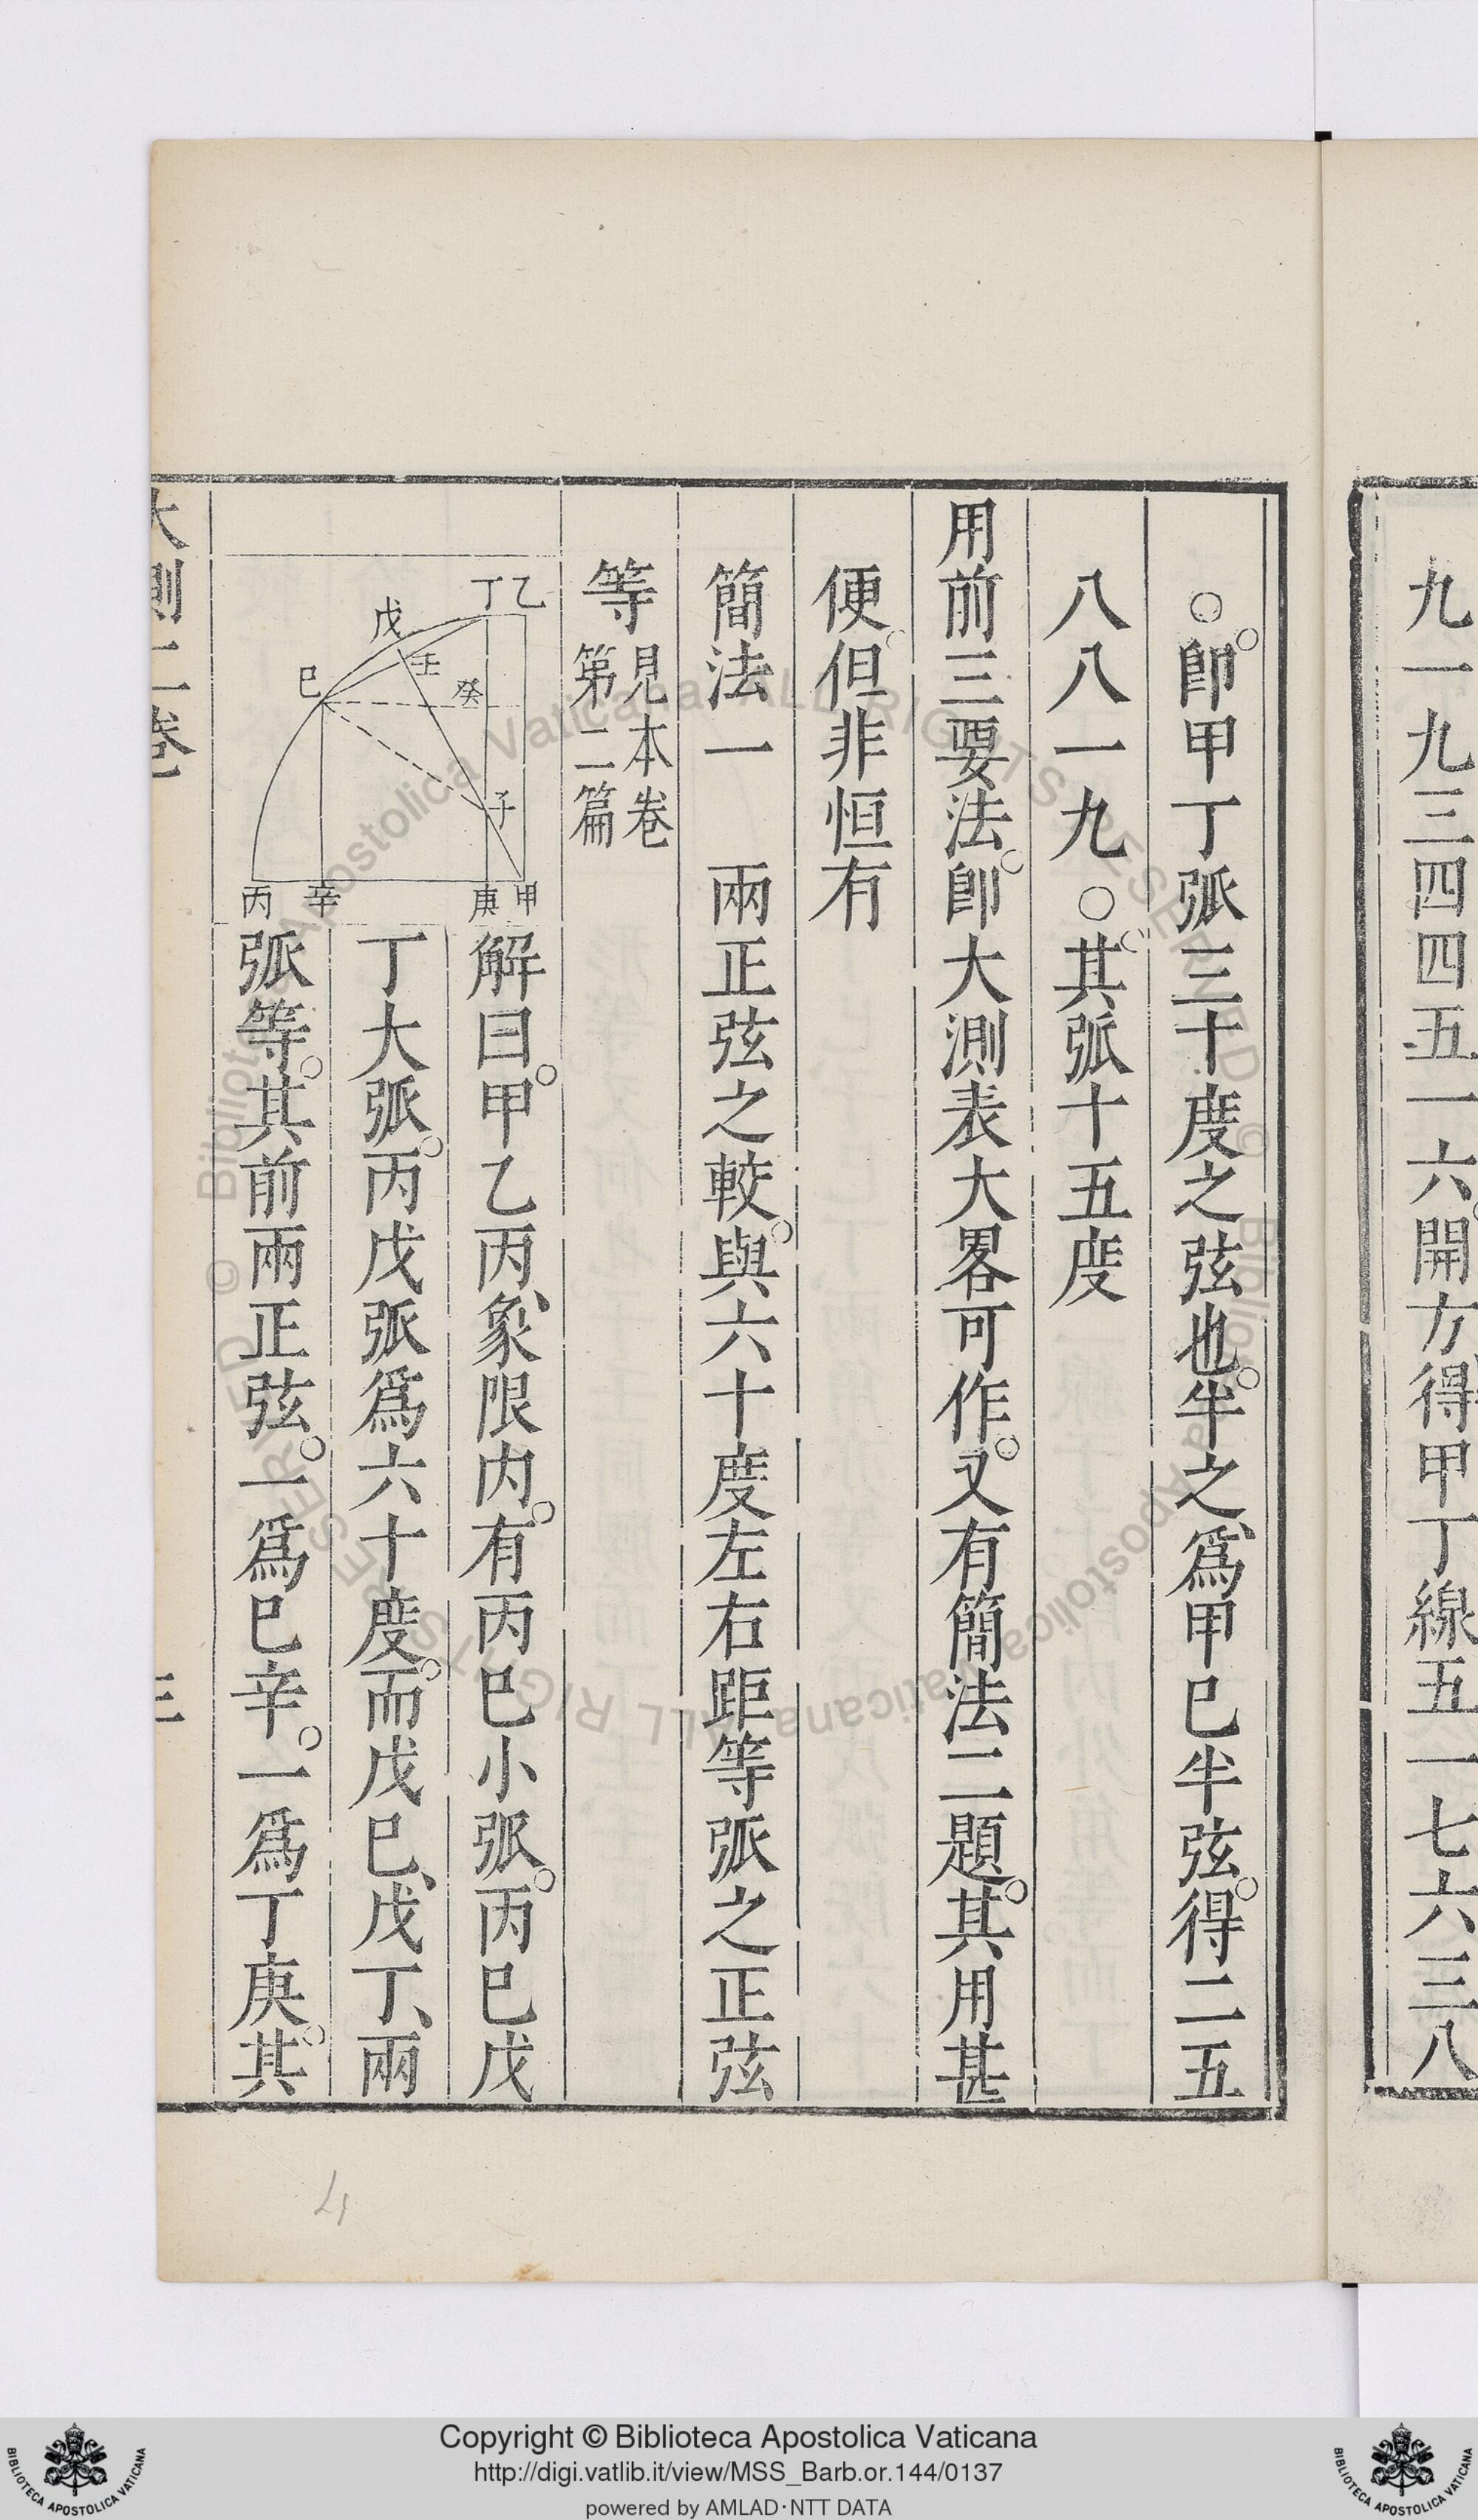 九一九三四四五一六開方得甲丁線五一七六三八
〇即甲丁弧三十度之弦也半之爲甲巳半弦得二五
八八一九〇其弧十五度
用前三要法即大測表大畧可作又有簡法二題其用甚
便但非恒有
簡法一 兩正弦之較與六十度左右距等弧之正弦
等 見本卷
第二篇
丁乙
戊
壬
巳
癸
子
丙 辛 庚 甲
解曰甲乙丙象限内有丙巳小弧丙巳戊
丁大弧丙戊弧爲六十度而戊巳戊丁兩
弧等其前兩正弦一爲巳辛一爲丁庚其
大測二卷
三
4
Copyright © Biblioteca Apostolica Vaticana
http://digi.vatlib.it/view/MSS_Barb.or.144/0137
powered by AMLAD·NTT DATA
BIBLIOTECA APOSTOLICA VATICANA
BIBLIOTECA APOSTOLICA VATICANA